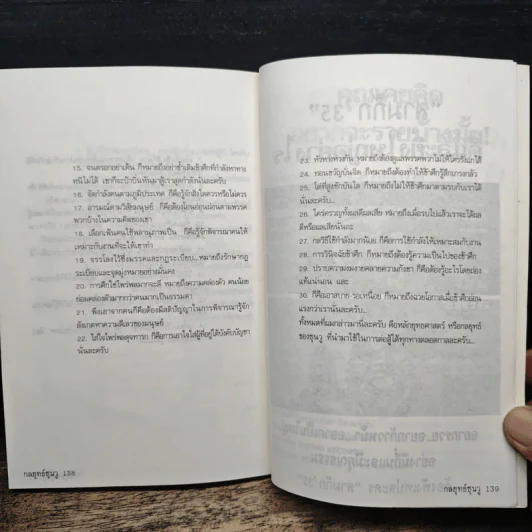 15. จนตรอกอย่าเค้น ก็หมายถึงอย่าซ้ำเติมข้าศึกที่กำลังหาทาง
หนีไม่ได้ เขาก็จะบ้าบิ่นหันมาสู้เราสุดกำลังนั่นละครับ...
16. จัดกำลังคนตามภูมิประเทศ ก็คือรู้จักสิ่งใดควรหรือไม่ควร
17. อารมณ์ตามวิสัยมนุษย์ ก็คือต้องโอนอ่อนผ่อนตามพรรค
พวกบ้างในความคิดของเขา
18. เลือกเฟ้นคนใช้พลานุภาพเป็น ก็คือรู้จักพิจารณาคนให้
เหมาะกับงานที่จะให้เขาทำ
19. จรรโลงไว้ซึ่งมรรคและกฎระเบียบ... หมายถึงรักษากฎ
ระเบียบและจุดมุ่งหมายอย่างมั่นคง
20. การศึกใช้ไพร่พลมากจะดี หมายถึงความคล่องตัว คนน้อย
ย่อมคล่องตัวมากกว่าคนมากเป็นธรรมดา
21. พึงเอาจากคนก็คือต้องมีสติปัญญาในการพิจารณารู้จัก
สังเกตหาความดีเลวของมนุษย์
22. ใส่ใจไพร่พลดุจทารก ก็คือการเอาใจใส่ผู้ที่อยู่ใต้บังคับบัญชา
นั่นละครับ
กลยุทธ์ซุนวู 138
23. หัวหางห่วงกัน หมายถึงต้องดูแลพรรคพวกไม่ให้ใครรังแกได้
24. ทอนขวัญบั่นจิต ก็หมายถึงต้องทำให้ข้าศึกรู้สึกเกรงกลัว
25. ไต่ที่สูงชักบันได ก็หมายถึงไม่ให้ข้าศึกมาตามรบกับเราได้
นั่นละครับ...
26. ใคร่ครวญทั้งผลดีผลเสีย หมายถึงเมื่อรบไปแล้วเราจะได้ผล
ดีหรือผลเสียนั่นละ
27. กลวิธีใช้กำลังมากนิยม ก็คือการใช้กำลังให้เหมาะสมกับงาน
28. การวินิจฉัยข้าศึก ก็หมายถึงต้องรู้ความเป็นไปของข้าศึก
29. ปราบความงมงายคลายความกังขา ก็คือต้องรู้อะไรโดยถ่อง
แท้แน่นอน และ
30. ก็คือเอาสบาย-รอเหนื่อย ก็หมายถึงฉวยโอกาสเมื่อข้าศึกอ่อน
แรงกว่าเรานั่นละครับ...
ทั้งหมดที่ผมกล่าวมานี่ละครับ คือหลักยุทธศาสตร์ หรือกลยุทธ์
ของซุนวู ที่นำมาใช้ในการต่อสู้ได้ทุกทางตลอดกาลละครับ...
กลยุทธ์ซุนวู 139